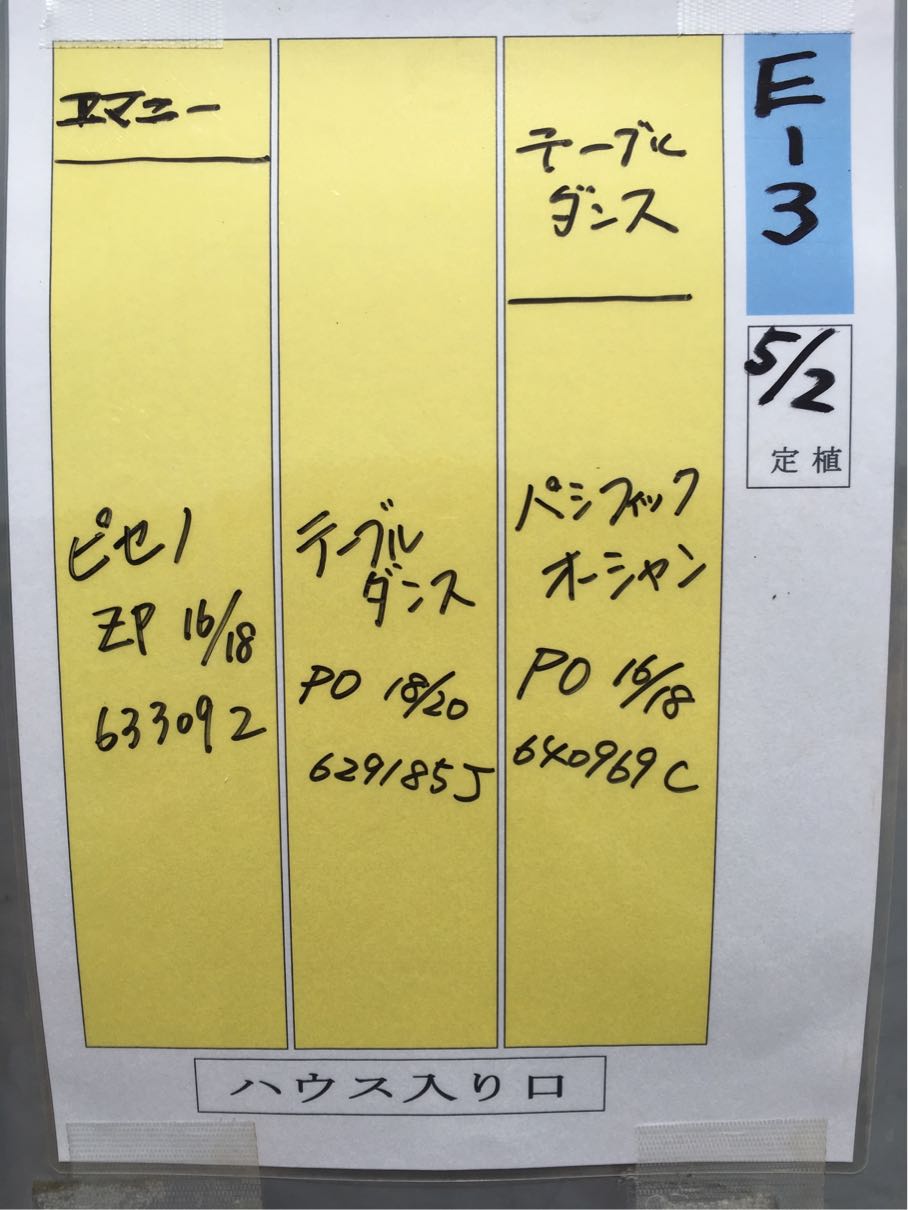 E-3
5/2
定植
エマニー
ピセノ
ZP 16/18
633092
テーブル
ダンス
PO 18/20
629185J
テーブル
ダンス
パシフィック
オーシャン
PO 16/18
640969C
ハウス入り口